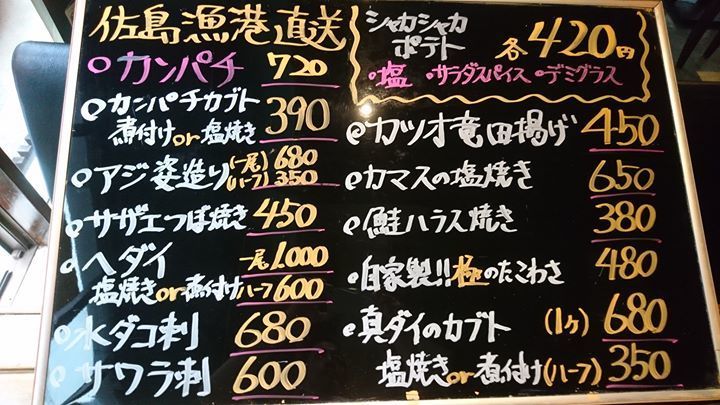 佐島漁港直送
カンパチ 720
カンパチカブト
煮付けor塩焼き 390
アジ姿造り (一尾) 680
(ハーフ) 350
サザエつぼ焼き 450
ヘダイ 一尾 1.000
塩焼きor煮付け ハーフ 600
水ダコ刺 680
サワラ刺 600
シャカシャカ
ポテト 各420円
・塩 ・サラダスパイス ・デミグラス
カツオ竜田揚げ 450
カマスの塩焼き 650
鮭ハラス焼き 380
自家製!!極のたこわさ 480
真ダイのカブト (1ヶ) 680
塩焼きor煮付け (ハーフ) 350